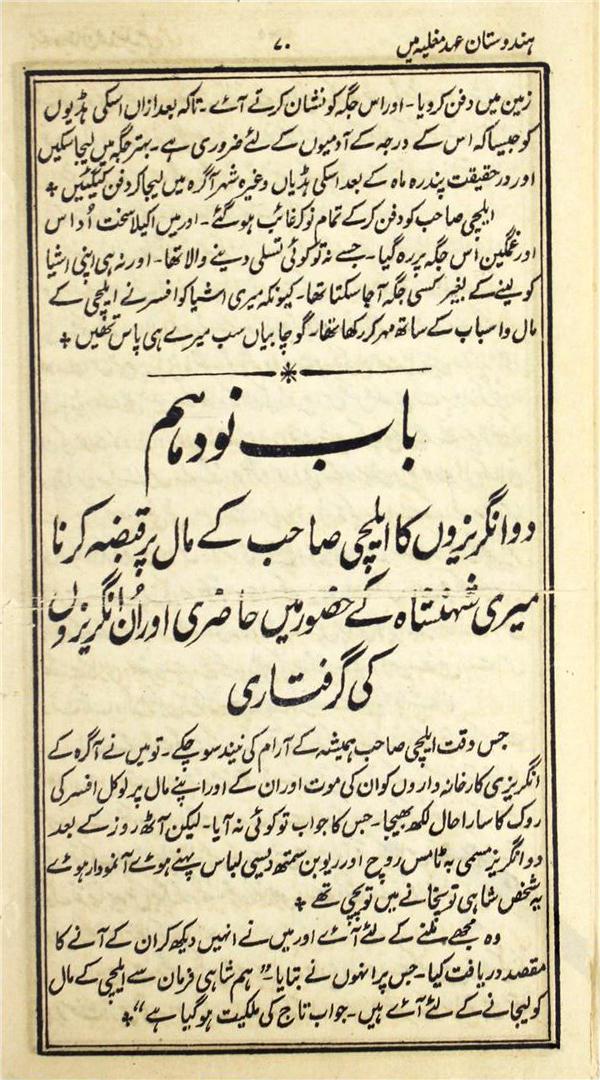 ہندوستان عہد مغلیہ میں
۷۰
زمین میں دفن کر دیا۔ اور اس جگہ کو نشان کرتے آئے۔ تاکہ بعد ازاں اسکی ہڈیوں
کو جیسا کہ اس کے درجہ کے آدمیوں کے لئے ضروری ہے۔ بہتر جگہ میں لیجا سکیں
اور در حقیقت پندرہ ماہ کے بعد اسکی ہڈیاں وغیرہ شہر آگرہ میں لیجا کر دفن کیگئیں ٭
ایلچی صاحب کو دفن کر کے تمام نوکر غائب ہو گئے۔ اور میں اکیلا سخت اُداس
اور غمگین اس جگہ پر رہ گیا۔ جسے نہ تو کوئی تسلی دینے والا تھا۔ اور نہ ہی اپنی اشیا
کو لینے کے بغیر کسی جگہ آ جا سکتا تھا۔ کیونکہ میری اشیا کو افسر نے ایلچی کے
مال و اسباب کے ساتھ مہر کر رکھا تھا۔ گو چابیاں سب میرے ہی پاس تھیں ٭
باب نود ہم
دو انگریزوں کا ایلچی صاحب کے مال پر قبضہ کرنا
میری شہنشاہ کے حضور میں حاضری اور اُن انگریزوں
کی گرفتاری
جس وقت ایلچی صاحب ہمیشہ کے آرام کی نیند سو چکے۔ تو میں نے آگرہ کے
انگریزی کارخانہ داروں کو ان کی موت اور ان کے اور اپنے مال پر لوکل افسر کی
روک کا سارا حال لکھ بھیجا۔ جس کا جواب تو کوئی نہ آیا۔ لیکن آٹھ روز کے بعد
دو انگریز مسمی بہ ٹامس روچ اور ریوبن سمتھ دیسی لباس پہنے ہوئے آ نمودار ہوئے
یہ شخص شاہی توپخانے میں توپچی تھے ٭
وہ مجھے ملنے کے لئے آئے اور میں نے انہیں دیکھ کر ان کے آنے کا
مقصد دریافت کیا۔ جس پر انہوں نے بتایا۔ "ہم شاہی فرمان سے ایلچی کے مال
کو لیجانے کے لئے آئے ہیں۔ جو اب تاج کی ملکیت ہو گیا ہے" ٭